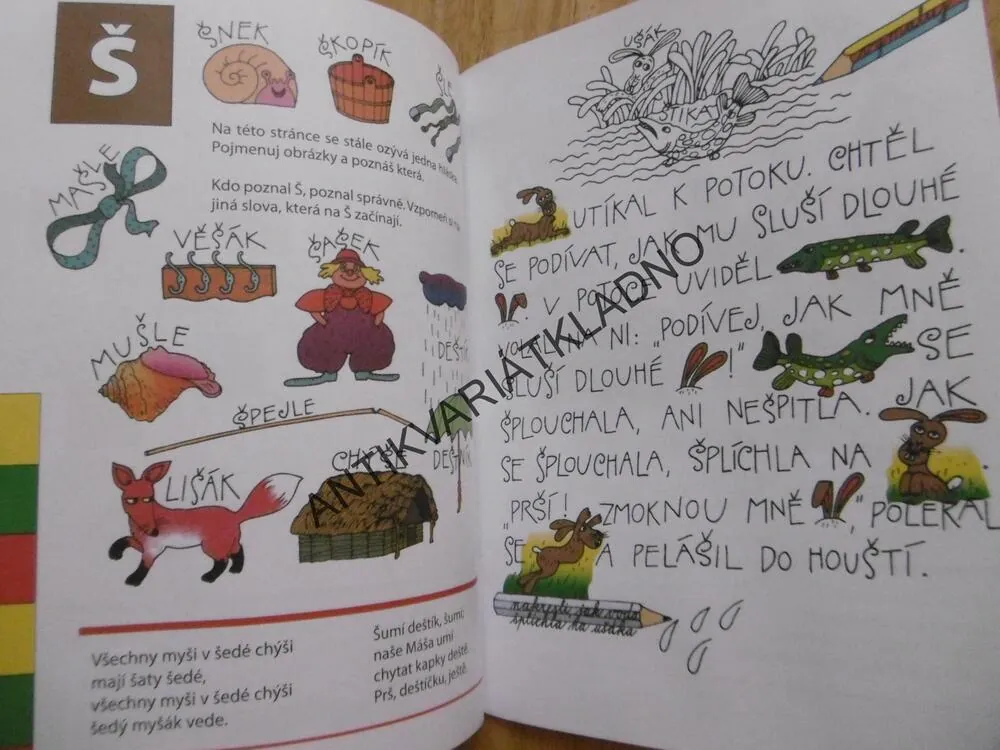 Š
ŠNEK
ŠKOPÍK
ŠLE
Na této stránce se stále ozývá jedna hláska.
Pojmenuj obrázky a poznáš která.
Kdo poznal Š, poznal správně. Vzpomeň si na
jiná slova, která na Š začínají.
MAŠLE
VĚŠÁK
ŠAŠEK
MUŠLE
DEŠTÍK
ŠPEJLE
LIŠÁK
DEŠTNÍK
Všechny myši v šedé chýši
mají šaty šedé,
všechny myši v šedé chýši
šedý myšák vede.
Šumí deštík, šumí,
naše Máša umí
chytat kapky deště.
Prš, deštíčku, ještě.
UŠÁK
ŠTIKA
UTÍKAL K POTOKU. CHTĚL
SE PODÍVAT, JAK MU SLUŠÍ DLOUHÉ
. V POTOCE UVIDĚL .
VOLAL NA NI: "PODÍVEJ, JAK MNĚ
SLUŠÍ DLOUHÉ !" SE
ŠPLOUCHALA, ANI NEŠPITLA. JAK
SE ŠPLOUCHALA, ŠPLÍCHLA NA .
"PRŠÍ! ZMOKNOU MNĚ ," POLEKAL
SE A PELÁŠIL DO HOUŠTÍ.
nakresli, jak voda
šplíchla na ušáka
ANTIKVARIÁTKLADNO